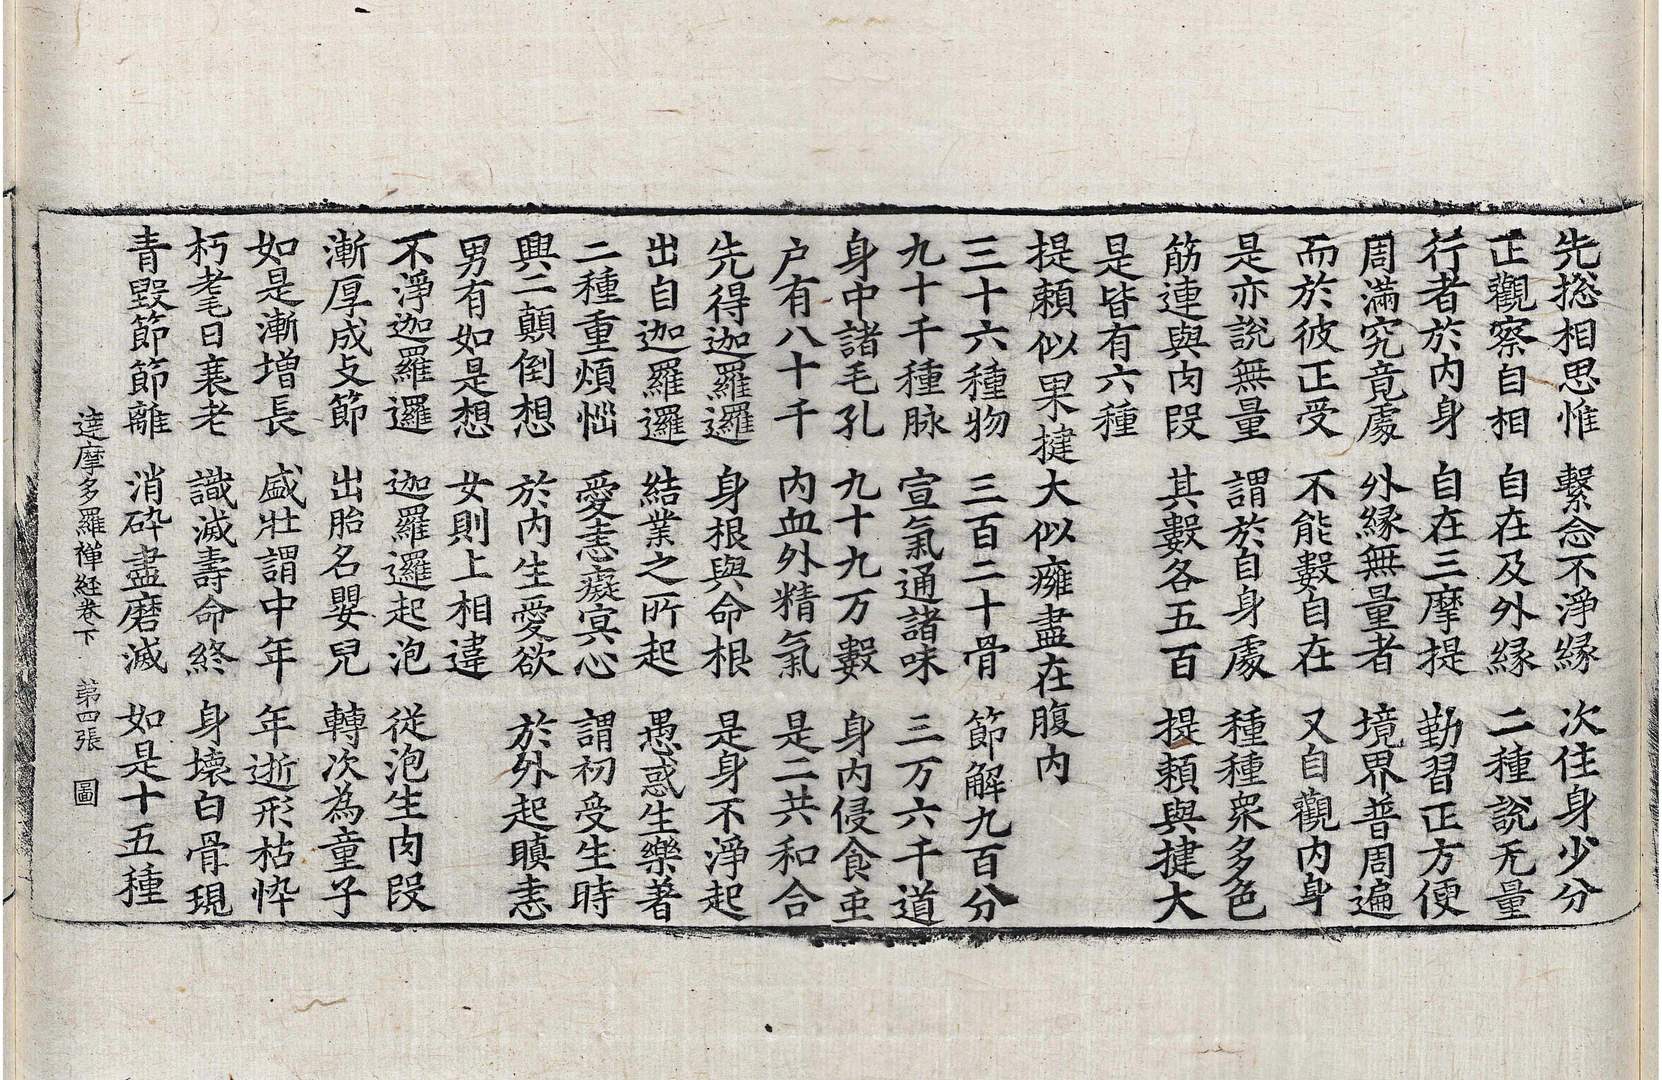 先捴相思惟 繫念不淨緣 次住身少分
正觀察自相 自在及外緣 二種說无量
行者於內身 自在三摩提 勤習正方便
周滿究竟處 外緣無量者 境界普周遍
而於彼正受 不能數自在 又自觀內身
是亦說無量 謂於自身處 種種衆多色
筋連與肉段 其數各五百 提賴與揵大
是皆有六種
提賴似果揵大似癰盡在腹內
三十六種物 三百二十骨 節解九百分
九十千種脉 宣氣通諸味 三万六千道
身中諸毛孔 九十九万數 身內侵食䖝
户有八十千 內血外精氣 是二共和合
先得迦羅邏 身根與命根 是身不淨起
出自迦羅邏 結業之所起 愚惑生樂著
二種重煩惱 愛恚癡冥心 謂初受生時
興二顛倒想 於內生愛欲 於外起瞋恚
男有如是想 女則上相違
不淨迦羅邏 迦羅邏起泡 從泡生肉段
漸厚成支節 出胎名嬰兒 轉次為童子
如是漸增長 盛壯謂中年 年逝形枯悴
朽耄日衰老 識滅壽命終 身壞白骨現
青毀節節離 消碎盡磨滅 如是十五種
達摩多羅禅経卷下 第四張 圖